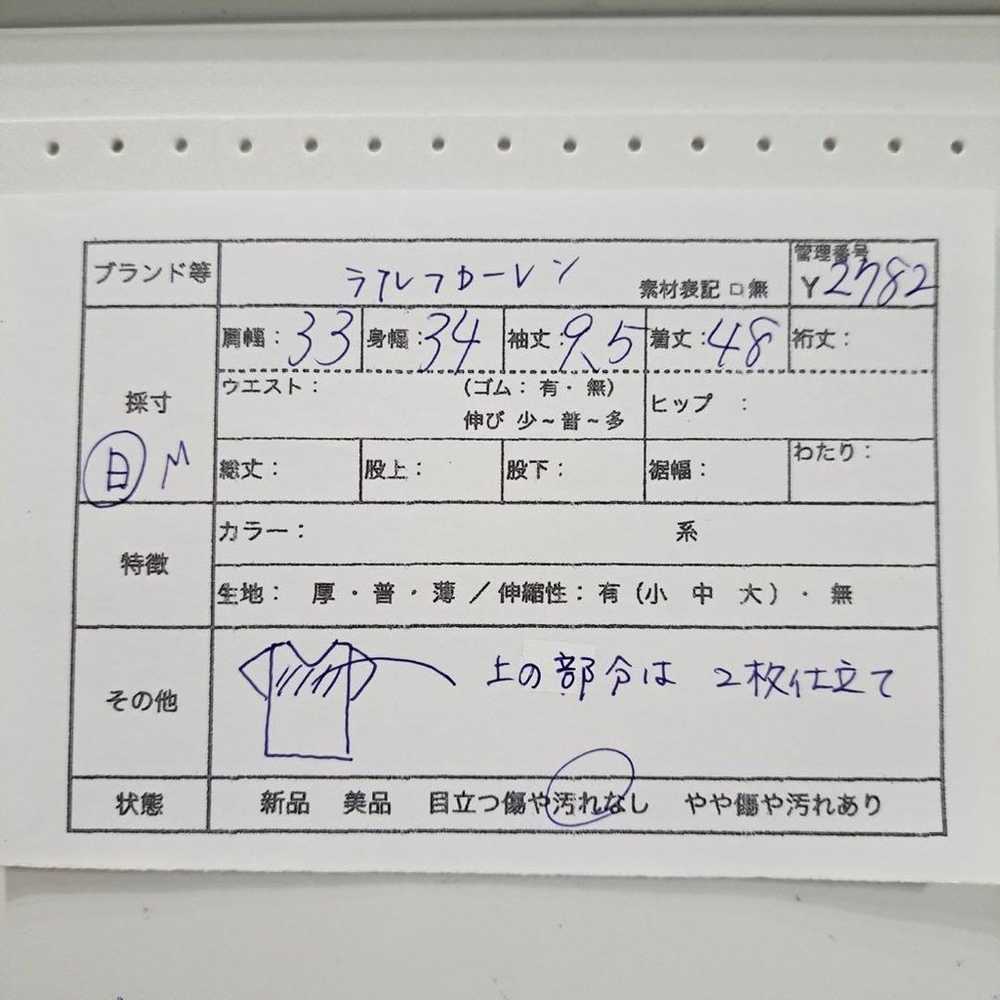 ブランド等 ラルフローレン 素材表記 □ 無 管理番号 Y2782
採寸 日 M
肩幅：33 身幅：34 袖丈：9.5 着丈：48 裄丈：
ウエスト： （ゴム：有・無）
伸び 少～普～多 ヒップ ：
総丈： 股上： 股下： 裾幅： わたり：
特徴 カラー： 系
生地： 厚・普・薄 ／伸縮性：有（小 中 大）・ 無
その他 上の部分は 2枚仕立て
状態 新品 美品 目立つ傷や汚れなし やや傷や汚れあり